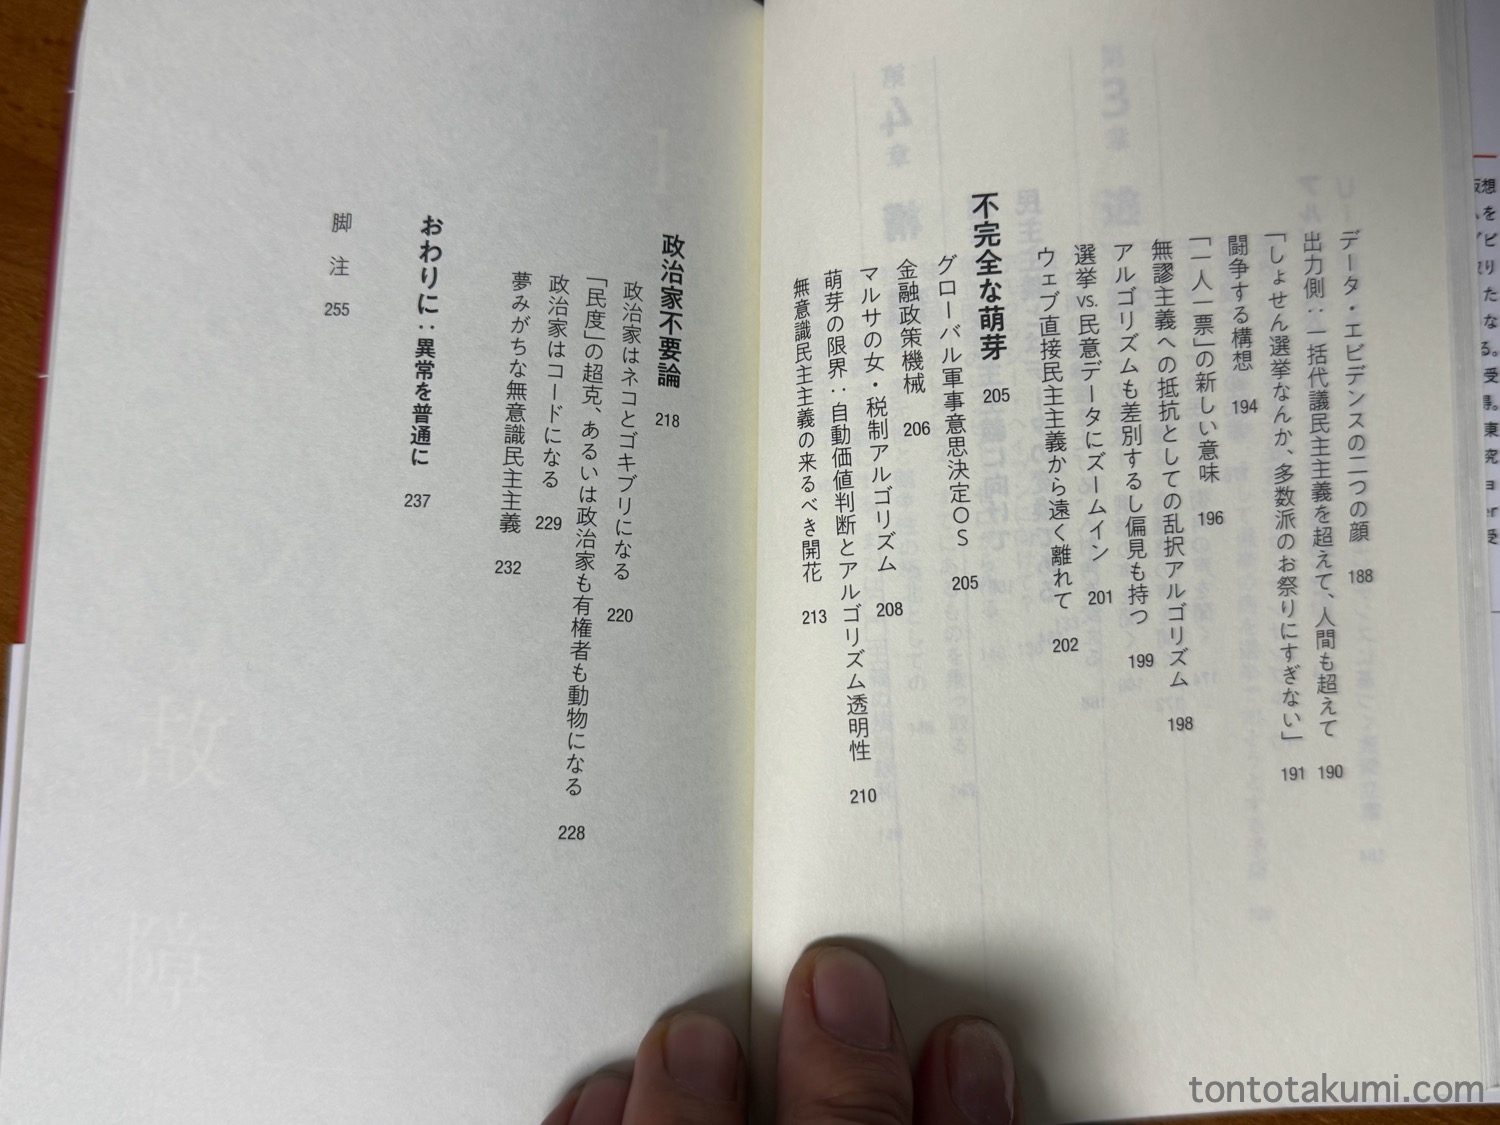 データ・エビデンスの二つの顔 188
出力側：一括代議民主主義を超えて、人間も超えて 190
「しょせん選挙なんか、多数派のお祭りにすぎない」 191
闘争する構想 194
「一人一票」の新しい意味 196
無謬主義への抵抗としての乱択アルゴリズム 198
アルゴリズムも差別するし偏見も持つ 199
選挙vs.民意データにズームイン 201
ウェブ直接民主主義から遠く離れて 202
不完全な萌芽 205
グローバル軍事意思決定OS 205
金融政策機械 206
マルサの女・税制アルゴリズム 208
萌芽の限界：自動価値判断とアルゴリズム透明性 210
無意識民主主義の来るべき開花 213
政治家不要論 218
政治家はネコとゴキブリになる 220
「民度」の超克、あるいは政治家も有権者も動物になる 228
政治家はコードになる 229
夢みがちな無意識民主主義 232
おわりに：異常を普通に 237
脚注 255
tontotakumi.com